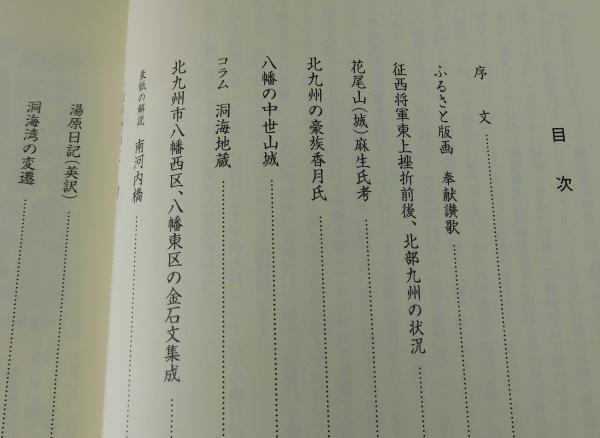 目次
序文
ふるさと版画 奉献讃歌
征西将軍東上挫折前後、北部九州の状況
花尾山(城)麻生氏考
北九州の豪族香月氏
八幡の中世山城
コラム 洞海地蔵
北九州市八幡西区、八幡東区の金石文集成
表紙の解説 南河内橋
湯原日記(英訳)
洞海湾の変遷